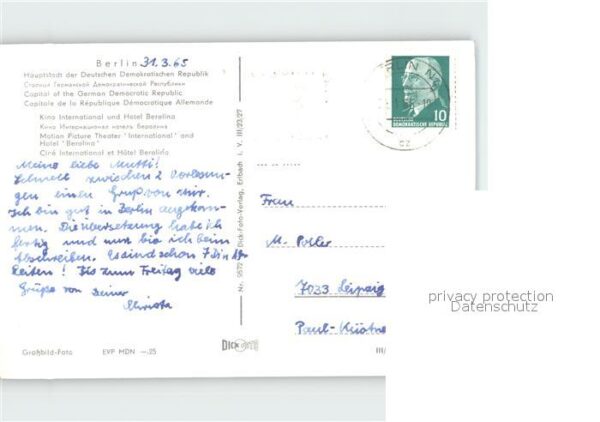 Berlin 31.3.65
Hauptstadt der Deutschen Demokratischen Republik
Столица Германской Демократической Республики
Capital of the German Democratic Republic
Capitale de la République Démocratique Allemande
Kino International und Hotel Berolina
Кино Интернационал и отель Беролина
Motion Picture Theater "International" and
Hotel "Berolina"
Ciné International et Hôtel Berolina
Meine liebe Mutti!
Schnell zwischen 2 Vorlesun-
gen einen Gruß von mir.
Ich bin gut in Berlin angekom-
men. Die Übersetzung habe ich
fertig und nun bin ich beim
Abschreiben. Es sind schon 7 Din A4
Seiten! Bis zum Freitag viele
Grüße von Deiner
Christa
Großbild-Foto EVP MDN —.25
Nr. 9572 Dick-Foto-Verlag, Erlbach i. V. III/23/27
DICK
10
DEUTSCHE DEMOKRATISCHE REPUBLIK
Frau
M. Poller
7033 Leipzig
Paul-Küstne
III/
privacy protection
Datenschutz